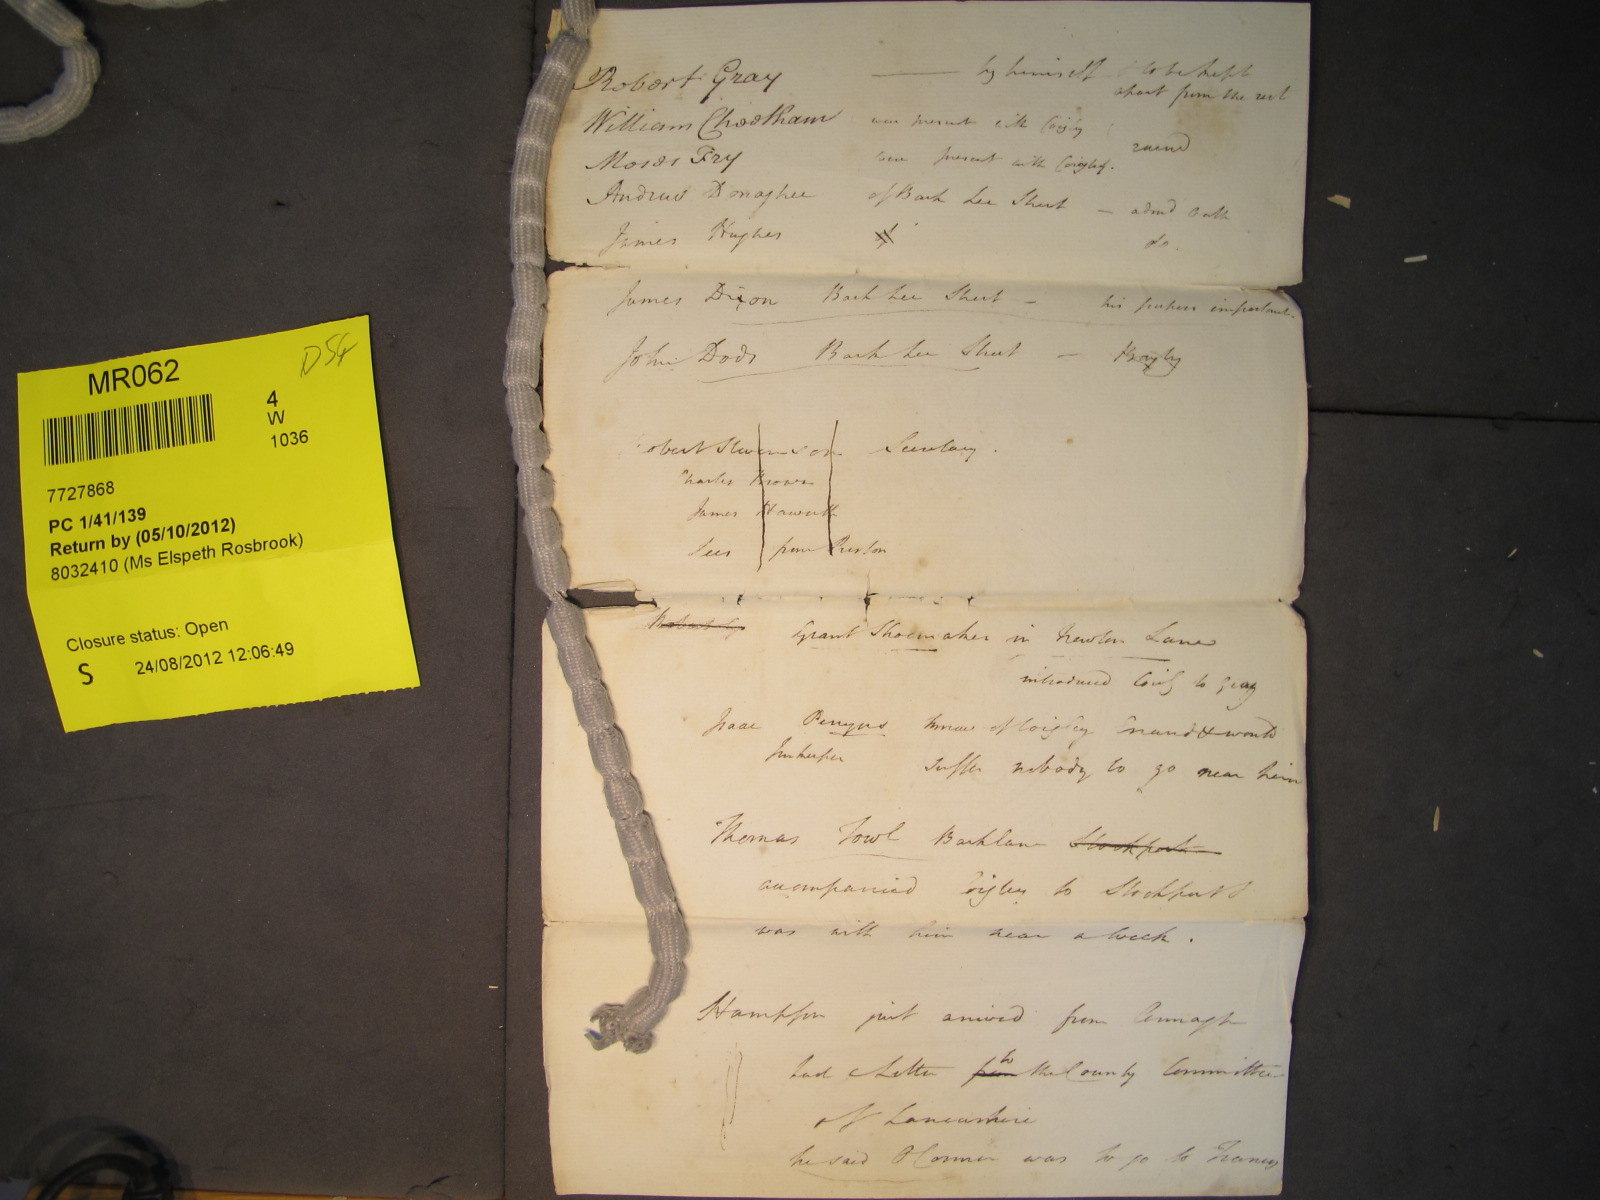 MR062
D54
4
W
1036
7727868
PC 1/41/139
Return by (05/10/2012)
8032410 (Ms Elspeth Rosbrook)
Closure status: Open
S 24/08/2012 12:06:49
Robert Gray — by himself & to be kept
apart from the rest
William Cheetham was present with Coigly
Moses Fry were present with Coigley.
Andrew Donaghee of Bark Lee Street — admd oath
James Hughes do.
James Dixon Bark Lee Street — his papers important
John Dods Bark Lee Street —
Robert Stevenson Secretary.
Charles Brown
James Haworth
Lees from Preston
Grant Shoemaker in Newton Lane
introduced Coigly to Gray
Isaac Perryns knew of Coigley Errand & would
Innkeeper suffer nobody to go near him
Thomas Towl Bark lane Stockport
accompanied Coigley to Stockport &
was with him near a Week.
Hampson just arrived from Connagh
had a Letter from to the County Committee
of Lancashire
he said O Connor was to go to France